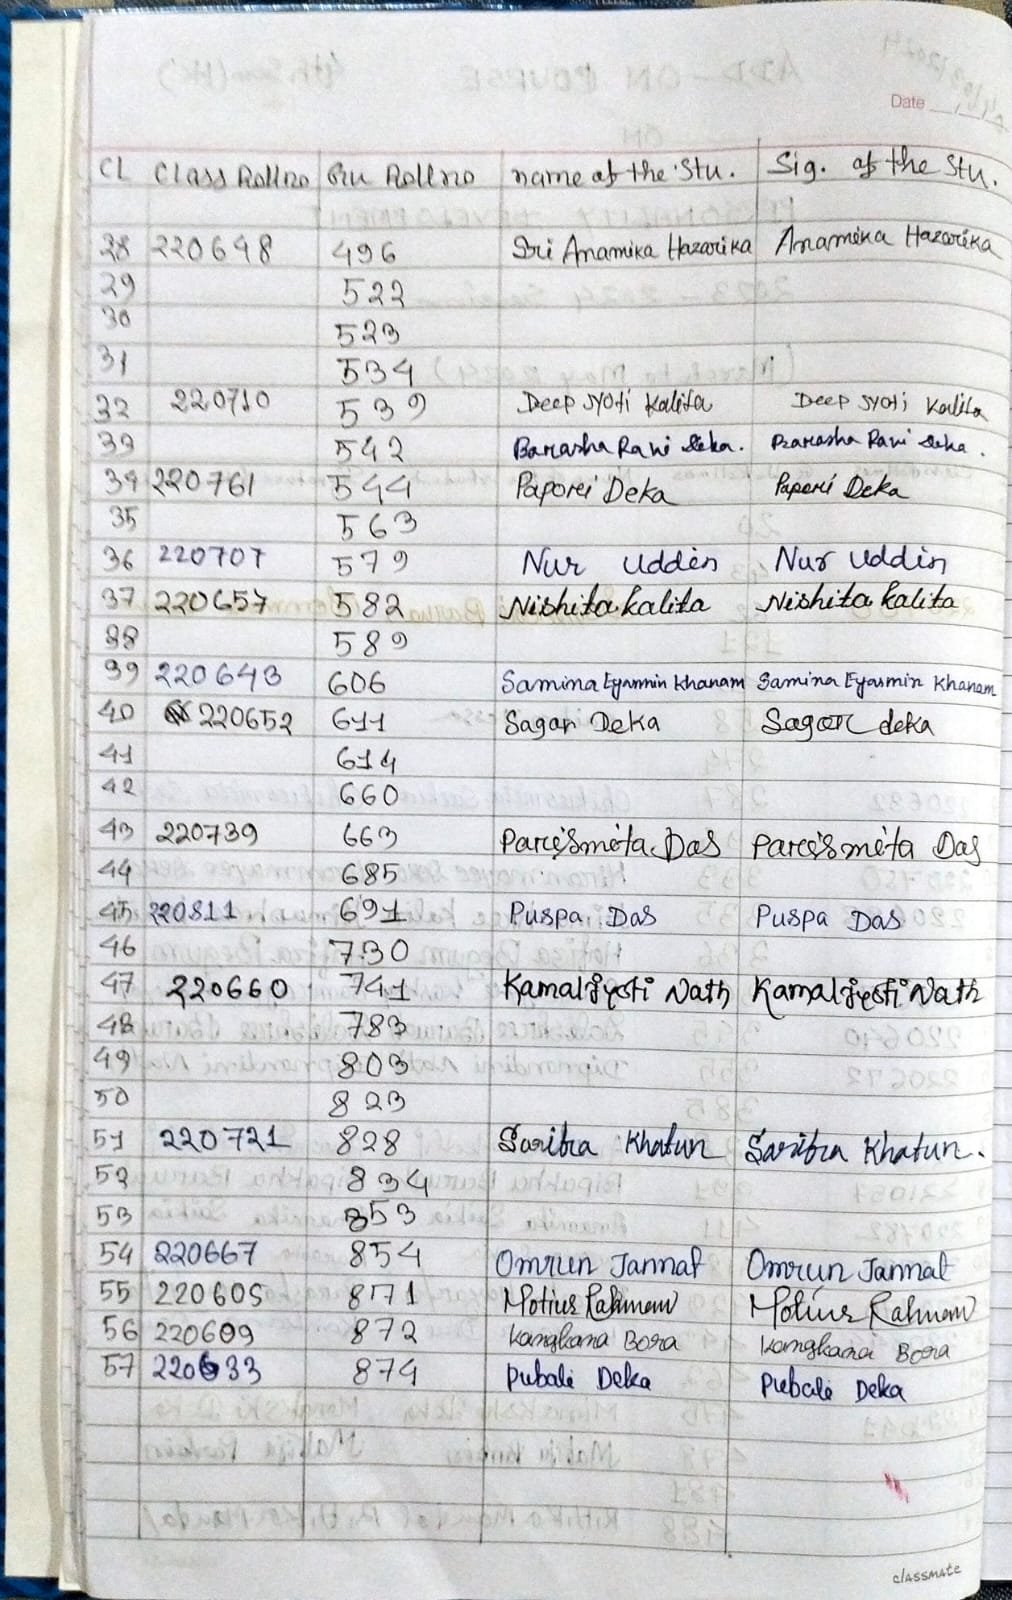 Date
CL Class Rollno Gu Rollno name of the Stu. Sig. of the Stu.
28 220648 496 Sri Anamika Hazarika Anamika Hazarika
29 522
30 523
31 534
32 220710 539 Deep Jyoti Kalita Deep Jyoti Kalita
33 542 Barasha Rani Deka. Barasha Rani Deka.
34 220761 544 Paporei Deka Paporei Deka
35 563
36 220707 579 Nur Uddin Nur Uddin
37 220657 582 Nishita kalita Nishita kalita
38 589
39 220643 606 Samina Eyasmin Khanam Samina Eyasmin Khanam
40 220652 611 Sagar Deka Sagar deka
41 614
42 660
43 220739 663 Parismita Das Parismita Das
44 685
45 220811 691 Puspa Das Puspa Das
46 730
47 220660 741 Kamaljyoti Nath Kamaljyoti Nath
48 783
49 803
50 823
51 220721 828 Saribra Khatun Saribra Khatun.
52 834
53 853
54 220667 854 Omrun Jannat Omrun Jannat
55 220605 871 Motiur Rahman Motiur Rahman
56 220609 872 Kangkana Bora Kangkana Bora
57 220633 874 Pubali Deka Pubali Deka
classmate